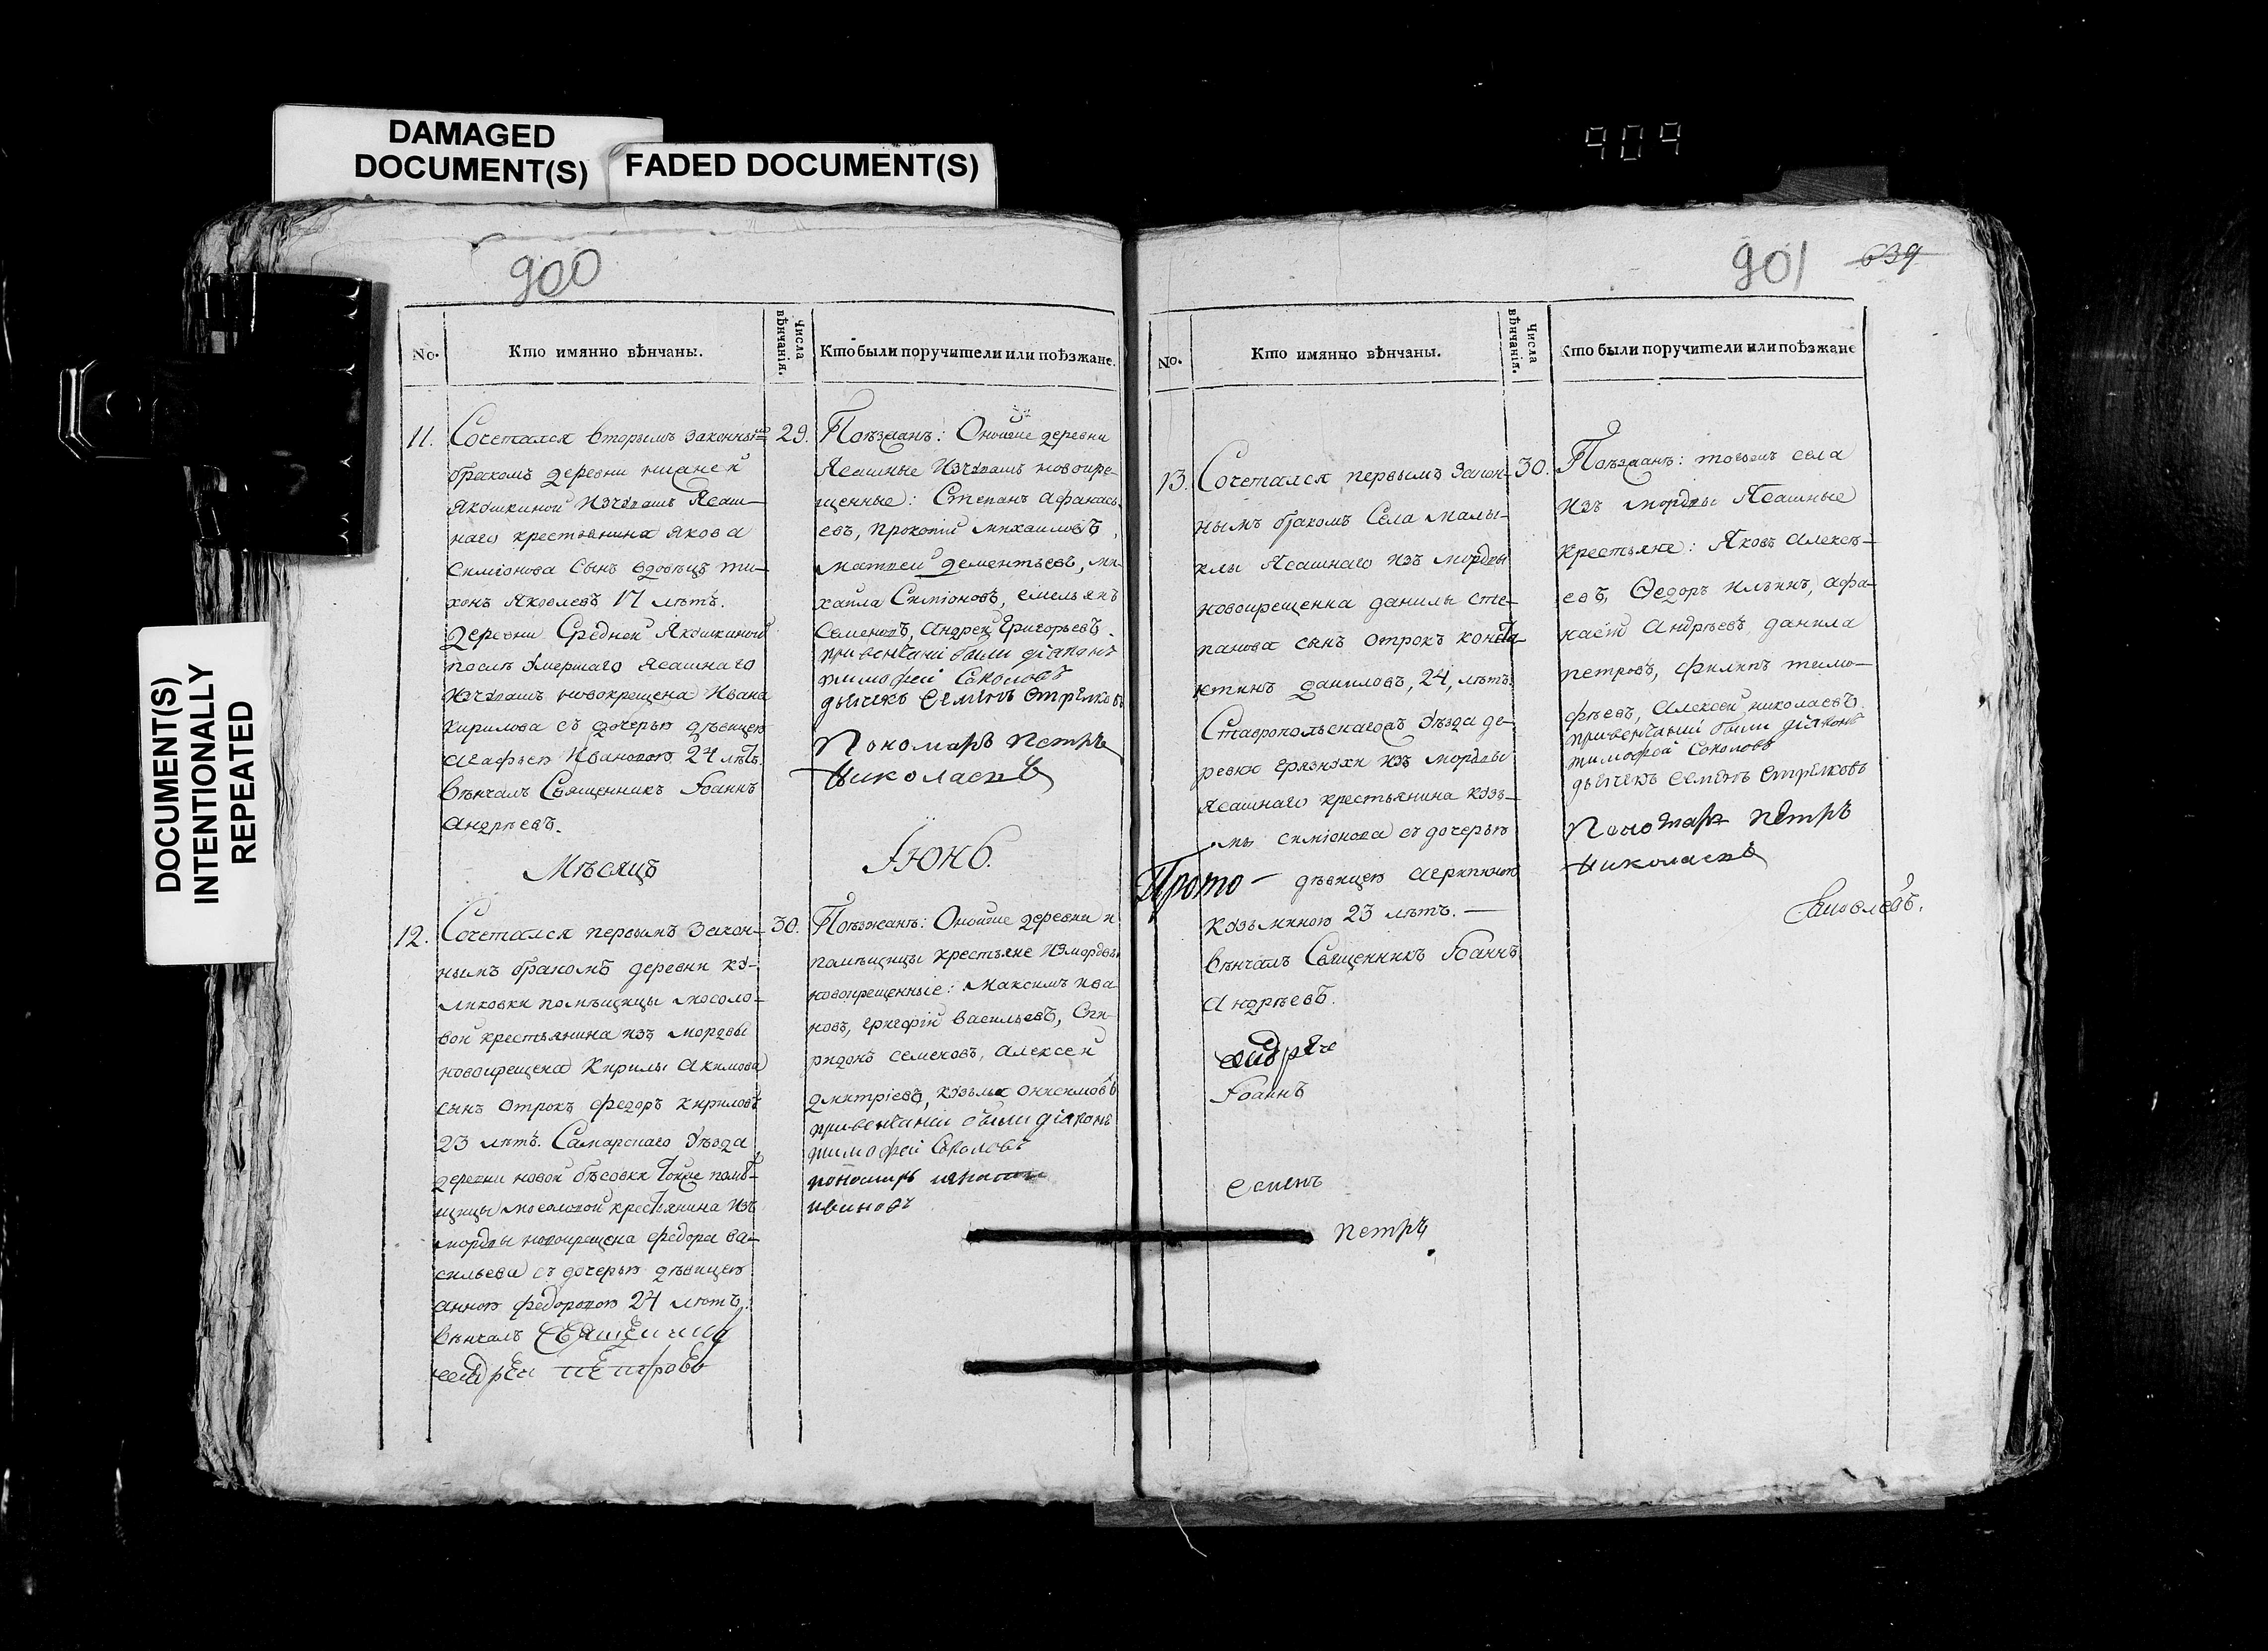 DAMAGED
DOCUMENT(S)
FADED DOCUMENT(S)
DOCUMENT(S)
INTENTIONALLY
REPEATED
909
900
No.
Кто имянно вѣнчаны.
Числа
вѣнчанія.
Кто были поручители или поѣзжане.
11.
Сочетался вторымъ законны
бракомъ деревни
Якушкиной Изчювашъ Ясаш-
наго крестьянина якова
Симіонова сынъ вдовецъ ти-
хонъ Яковлевъ 17 лѣтъ.
деревни Средней Якушкиной
послѣ умершаго ясашнаго
Изчювашъ новокрещена Ивана
Кирилова съ дочерью дѣвицею
агафьею Ивановою 24 лѣтъ.
вѣнчалъ Священникъ Іоаннъ
андрѣевъ.
29.
Поѣзжанѣ: Оной же деревни
Ясашные Изчювашъ новокре-
щенные: Степанъ афанась-
евъ, прокопій михаиловъ,
матвеи дементьевъ, ми-
хаила Симіоновъ, емельянъ
Семеновъ, андреи Григорьевъ.
при венчаніи были діаконъ
тимофей Соколовъ
дьячекъ Семенъ Стрелковъ
Пономарь Петръ
Николаевъ
Мѣсяцъ
Іюнь.
12.
Сочетался первымъ закон-
нымъ бракомъ деревни ку-
ликовки помѣщицы мосоло-
вой крестьянина изъ мордвы
новокрещена Кирилы акимова
сынъ отрокъ федоръ кириловъ
23 лѣтъ. Самарскаго уѣзда
деревни новой бѣсовки тойже помѣ-
щицы мосоловой крестьянина изъ
мордвы новокрещена федора ва-
сильева съ дочерью дѣвицею
анною федоровою 24 лѣтъ.
вѣнчалъ священникъ
андрей петровъ
30.
Поѣзжанѣ: Оной же деревни и
помѣщицы крестьяне Измордвы
новокрещенные: Максимъ ива
новъ, ерофій васильевъ, Спи-
ридонъ семеновъ, алексеи
дмитріевъ, кузьма онисимовъ
при венчаніи были діаконъ
тимофеи Соколовъ
пономарь
ивановъ
901
639
No.
Кто имянно вѣнчаны.
Числа
вѣнчанія.
Кто были поручители или поѣзжане
13.
Сочетался первымъ закон-
нымъ бракомъ Села малы-
клы Ясашнаго изъ мордвы
новокрещенна данилы сте-
панова сынъ отрокъ конста
нтинъ даниловъ, 24, лѣтъ.
Ставропольскаго уѣзда де-
ревни Грязнухи изъ мордвы
Ясашнаго крестьянина кузь-
мы симіонова съ дочерью
Прото- дѣвицею агрипиною
кузьминою 23 лѣтъ. —
вѣнчалъ Священникъ Іоаннъ
андрѣевъ.
андрѣе
Іоаннъ
семенъ
петръ
30.
Поѣзжанѣ: тогожъ села
изъ мордвы Ясашные
крестьяне: Яковъ алексѣ-
евъ, Ѳедоръ ильинъ, афа-
насій андрѣевъ, данила
петровъ, филипъ тимо-
фѣевъ, алексеи николаевъ.
привенчаніи были діаконъ
тимофеи Соколовъ
дьячекъ семенъ Стрелковъ
Пономарь Петръ
Николаевъ
Яковлевъ.